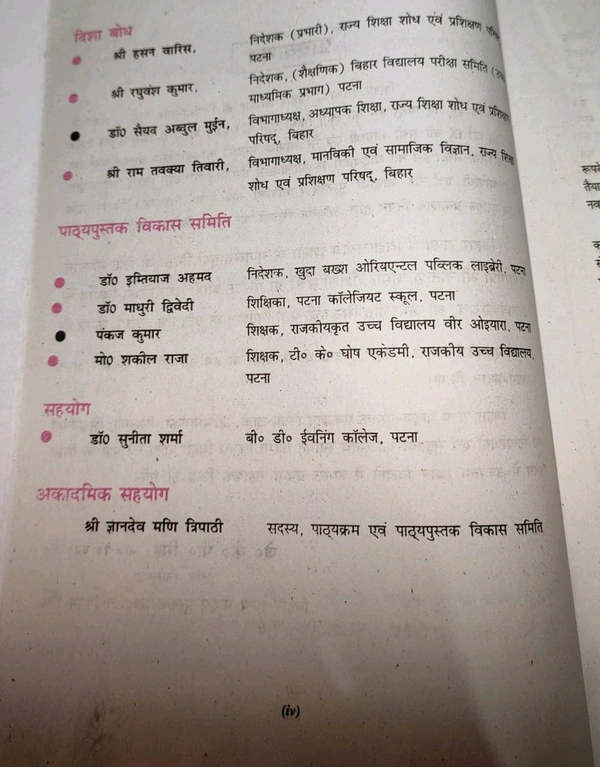 दिशा बोध
श्री हसन वारिस, निदेशक (प्रभारी), राज्य शिक्षा शोध एवं प्रशिक्षण
पटना
श्री रघुवंश कुमार, निदेशक, (शैक्षणिक) बिहार विद्यालय परीक्षा समिति
माध्यमिक प्रभाग) पटना
डॉ0 सैयद अब्दुल मुईन, विभागाध्यक्ष, अध्यापक शिक्षा, राज्य शिक्षा शोध एवं
परिषद्, बिहार
श्री राम तवक्या तिवारी, विभागाध्यक्ष, मानविकी एवं सामाजिक विज्ञान, राज्य
शोध एवं प्रशिक्षण परिषद्, बिहार
पाठ्यपुस्तक विकास समिति
डॉ0 इम्तियाज अहमद निदेशक, खुदा बख्श ओरियएन्टल पब्लिक लाइब्रेरी, पटना
डॉ0 माधुरी द्विवेदी शिक्षिका, पटना कॉलेजियट स्कूल, पटना
पंकज कुमार शिक्षक, राजकीयकृत उच्च विद्यालय वीर ओइयारा, पटना
मो0 शकील राजा शिक्षक, टी० के० घोष एकेडमी, राजकीय उच्च विद्यालय,
पटना
सहयोग
डॉ0 सुनीता शर्मा बी० डी० ईवनिंग कॉलेज, पटना
अकादमिक सहयोग
श्री ज्ञानदेव मणि त्रिपाठी सदस्य, पाठ्यक्रम एवं पाठ्यपुस्तक विकास समिति
(iv)